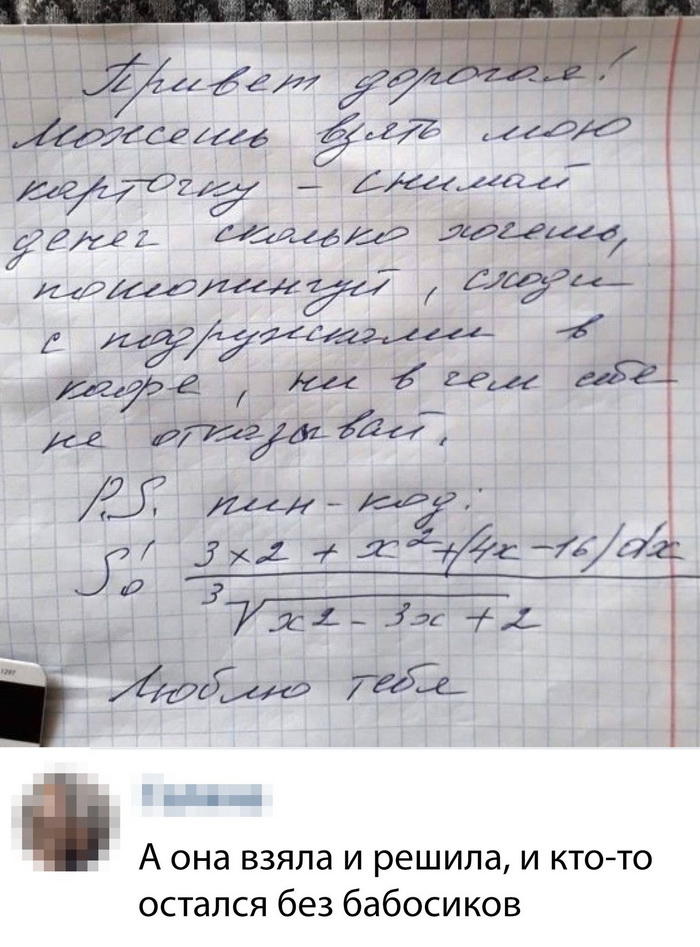 Привет дорогая!
Можешь взять мою
карточку - снимай
денег сколько хочешь,
пошопингуй, сходи
с подружками в
кафе, ни в чем себе
не отказывай.
P.S. пин-код:
∫₀¹ 3x2 + x² + (4x - 16) dx
³√x2 - 3x + 2
Люблю тебя
А она взяла и решила, и кто-то
остался без бабосиков